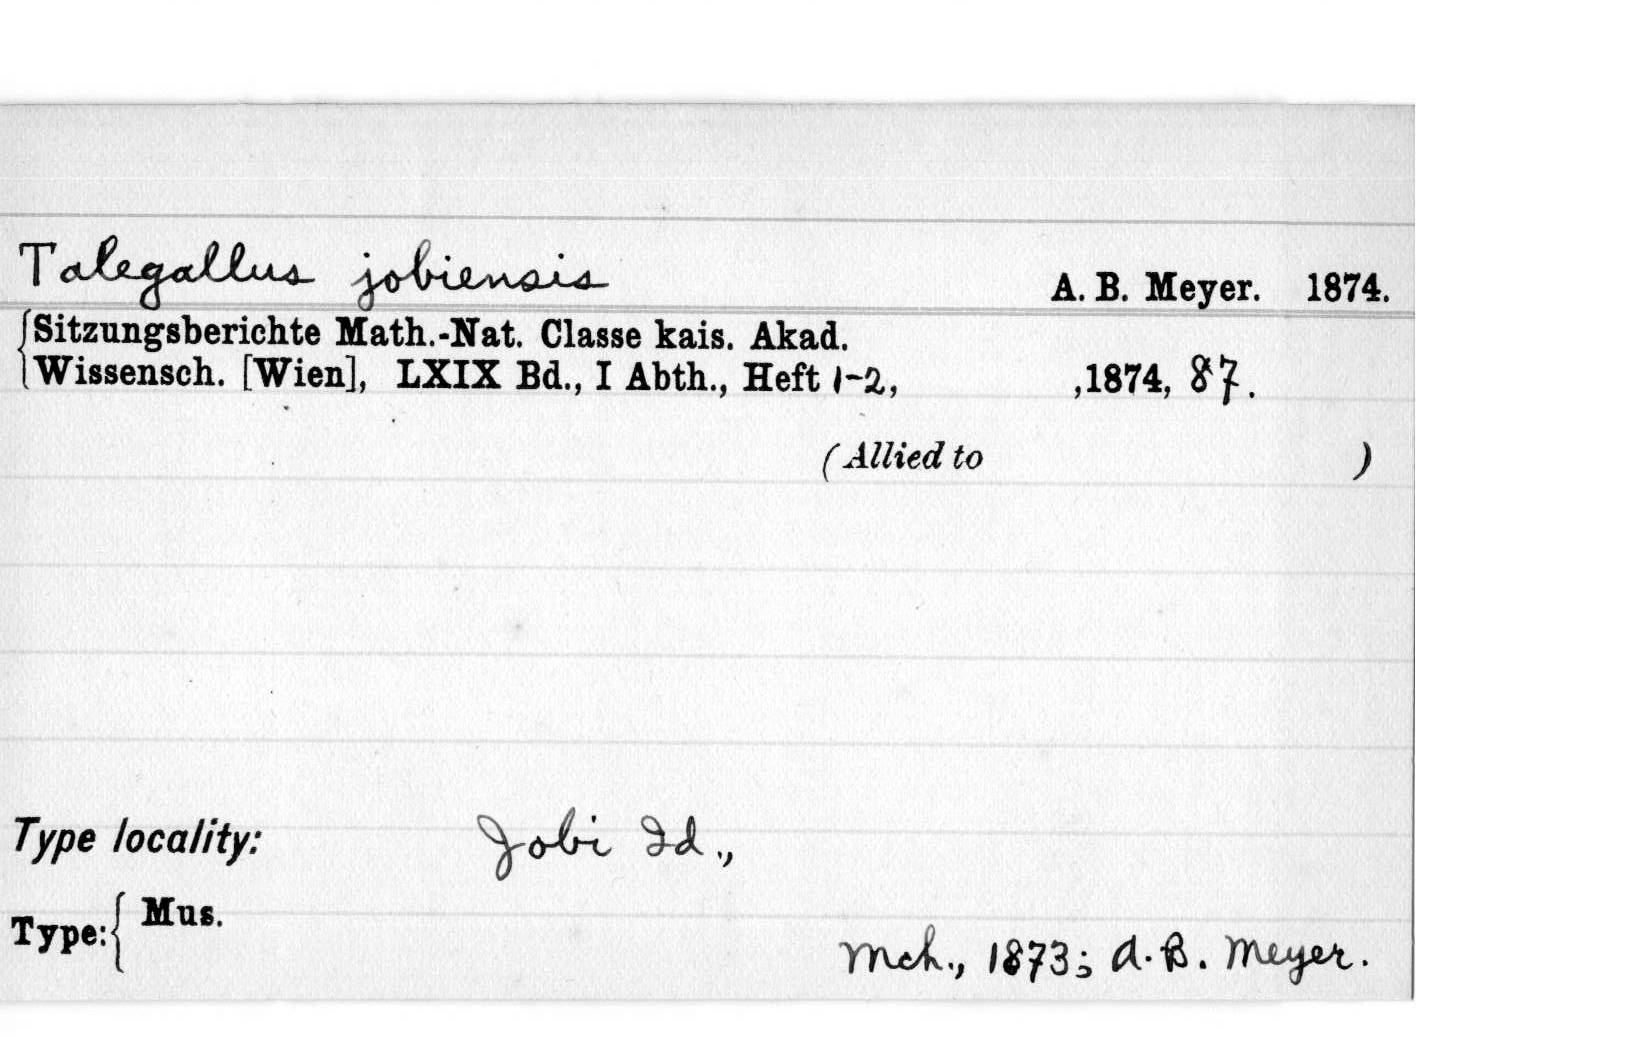 Talegallus jobiensis A. B. Meyer. 1874.
Sitzungsberichte Math.-Nat. Classe kais. Akad.
Wissensch. [Wien], LXIX Bd., I Abth., Heft 1-2, ,1874, 87.
(Allied to )
Type locality: Jobi Id.,
Type: Mus.
Mch., 1873; A. B. Meyer.